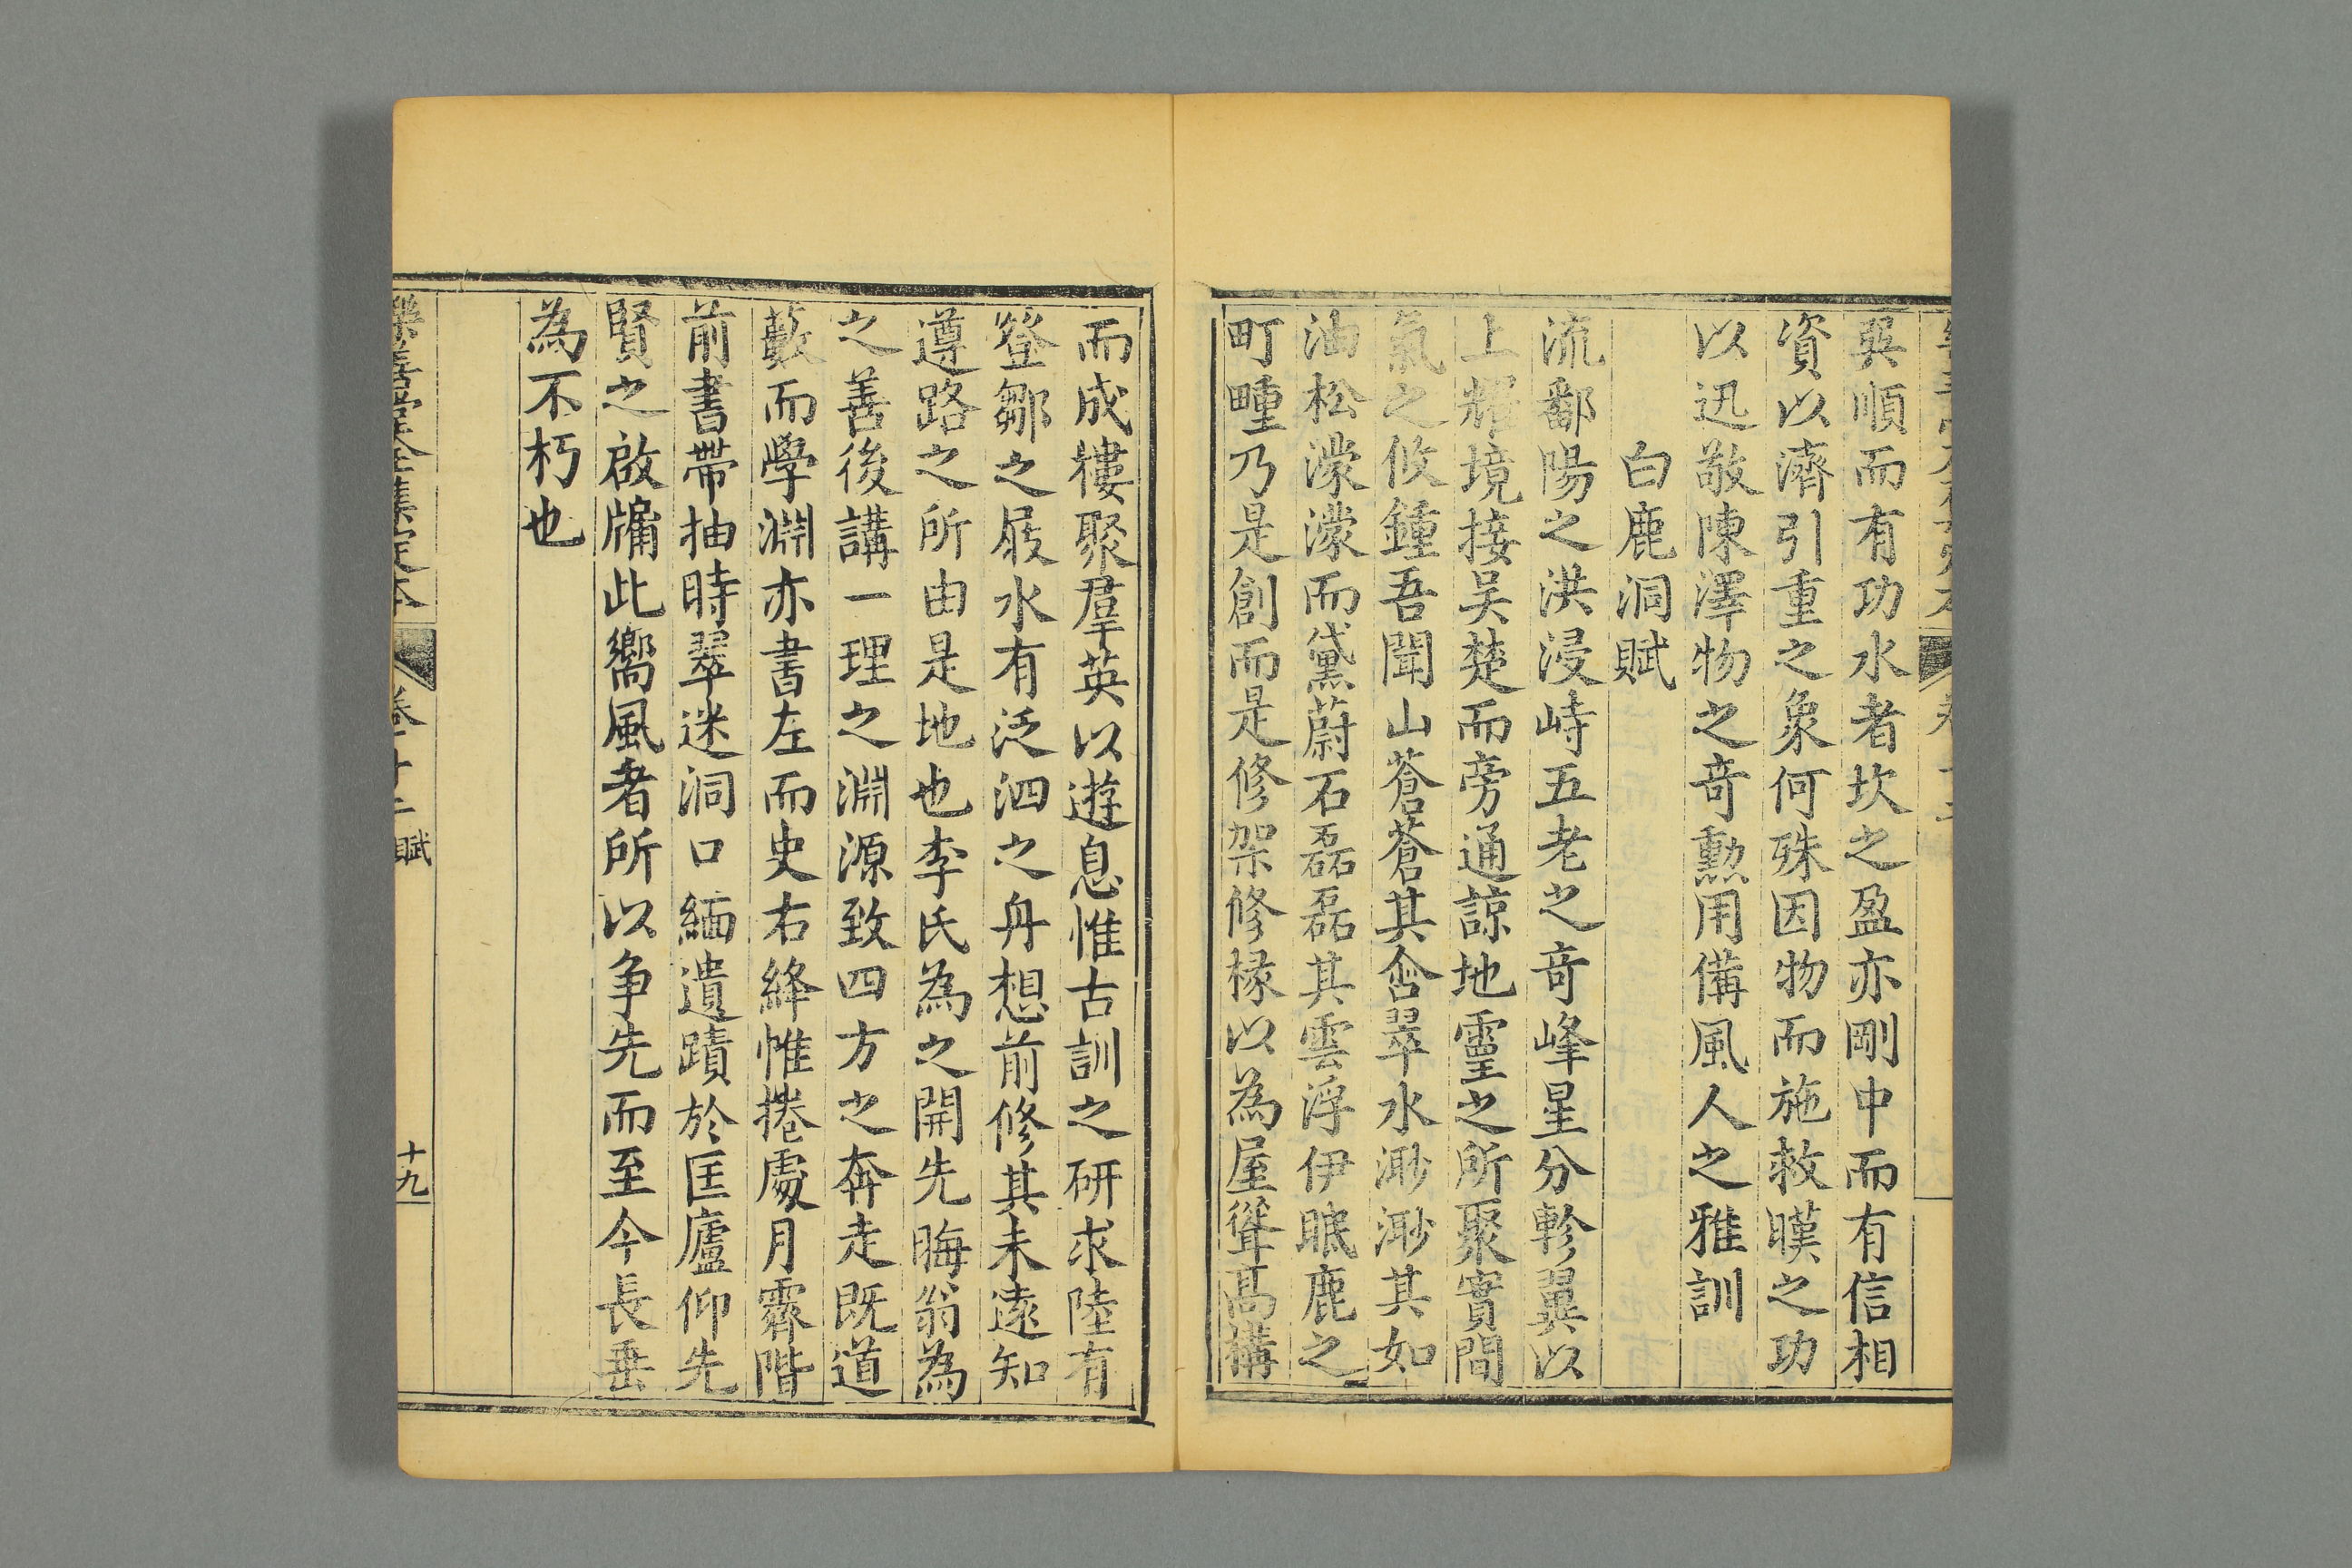 巽順而有功水者坎之盈亦剛中而有信相
資以濟引重之象何殊因物而施救嘆之功
以迅敬陳澤物之竒勳用備風人之雅訓
白鹿洞賦
流鄱陽之洪浸峙五老之竒峰星分軫翼以
上耀境接吴楚而旁通諒地靈之所聚實間
氣之攸鍾吾聞山蒼蒼其含翠水渺渺其如
油松濛濛而黛蔚石磊磊其雲浮伊眠鹿之
町畽乃是創而是修架修椽以為屋聳髙構
而成樓聚羣英以遊息惟古訓之研求陸有
登鄒之屐水有泛泗之舟想前修其未遠知
遵路之所由是地也李氏為之開先晦翁為
之善後講一理之淵源致四方之奔走既道
藪而學淵亦書左而史右絳帷捲處月霽階
前書帶抽時翠迷洞口緬遺蹟於匡廬仰先
賢之啟牖此嚮風者所以争先而至今長垂
為不朽也
樂善堂全集定本 卷十二 賦 十九